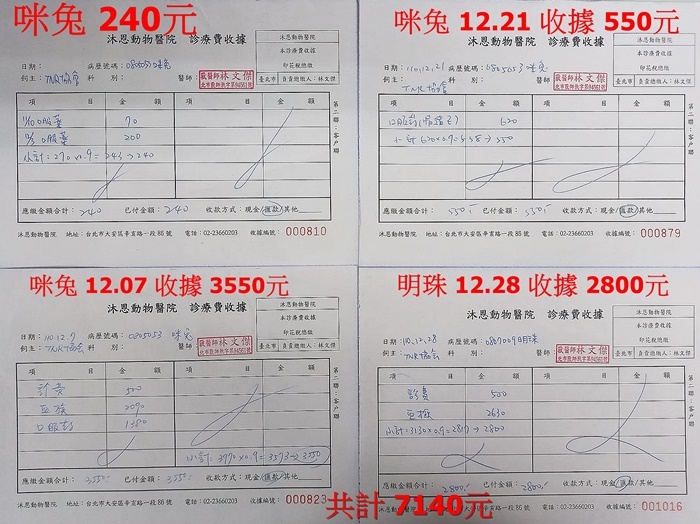 咪兔 240元
沐恩動物醫院 診療費收據
沐恩動物醫院
本診療費收據
印花稅總繳
臺北市 負責總繳人:林文傑
日期: 病歷號碼:0805053 咪兔
飼主:TNR協會 科別: 醫師
獸醫師林文傑
項目 金額 項目 金額
口服藥 70
口服藥 200
小計:270×0.9=243→240
第二聯:客戶聯
應繳金額合計:240 已付金額:240 收款方式:現金/匯款/其他
沐恩動物醫院 地址:台北市大安區辛亥路一段86號 電話:02-23660203 收據編號:000810
咪兔 12.21 收據 550元
沐恩動物醫院 診療費收據
沐恩動物醫院
本診療費收據
印花稅總繳
臺北市 負責總繳人:林文傑
日期:110.12.21 病歷號碼:0805053 咪兔
飼主:TNR協會 科別: 醫師
獸醫師林文傑
項目 金額 項目 金額
620
小計 620×0.9=558→550
第二聯:客戶聯
應繳金額合計:550 已付金額:550 收款方式:現金/匯款/其他
沐恩動物醫院 地址:台北市大安區辛亥路一段86號 電話:02-23660203 收據編號:000879
咪兔 12.07 收據 3550元
沐恩動物醫院 診療費收據
沐恩動物醫院
本診療費收據
印花稅總繳
臺北市 負責總繳人:林文傑
日期:110.12.7 病歷號碼:0805053 咪兔
飼主:TNR協會 科別: 醫師
獸醫師林文傑
項目 金額 項目 金額
診費 500
血檢 2090
口服藥 1380
小計:3970×0.9=3573→3550
第二聯:客戶聯
應繳金額合計:3550 已付金額:3550 收款方式:現金/匯款/其他
沐恩動物醫院 地址:台北市大安區辛亥路一段86號 電話:02-23660203 收據編號:000823
明珠 12.28 收據 2800元
沐恩動物醫院 診療費收據
沐恩動物醫院
本診療費收據
印花稅總繳
臺北市 負責總繳人:林文傑
日期:110.12.28 病歷號碼:0807009 明珠
飼主:TNR協會 科別: 醫師
獸醫師林文傑
項目 金額 項目 金額
診費 500
血檢 2630
小計:3130×0.9=2817→2800
第二聯:客戶聯
應繳金額合計: 2800 已付金額:2800 收款方式:現金/匯款/其他
沐恩動物醫院 地址:台北市大安區辛亥路一段86號 電話:02-23660203 收據編號:001016
共計 7140元